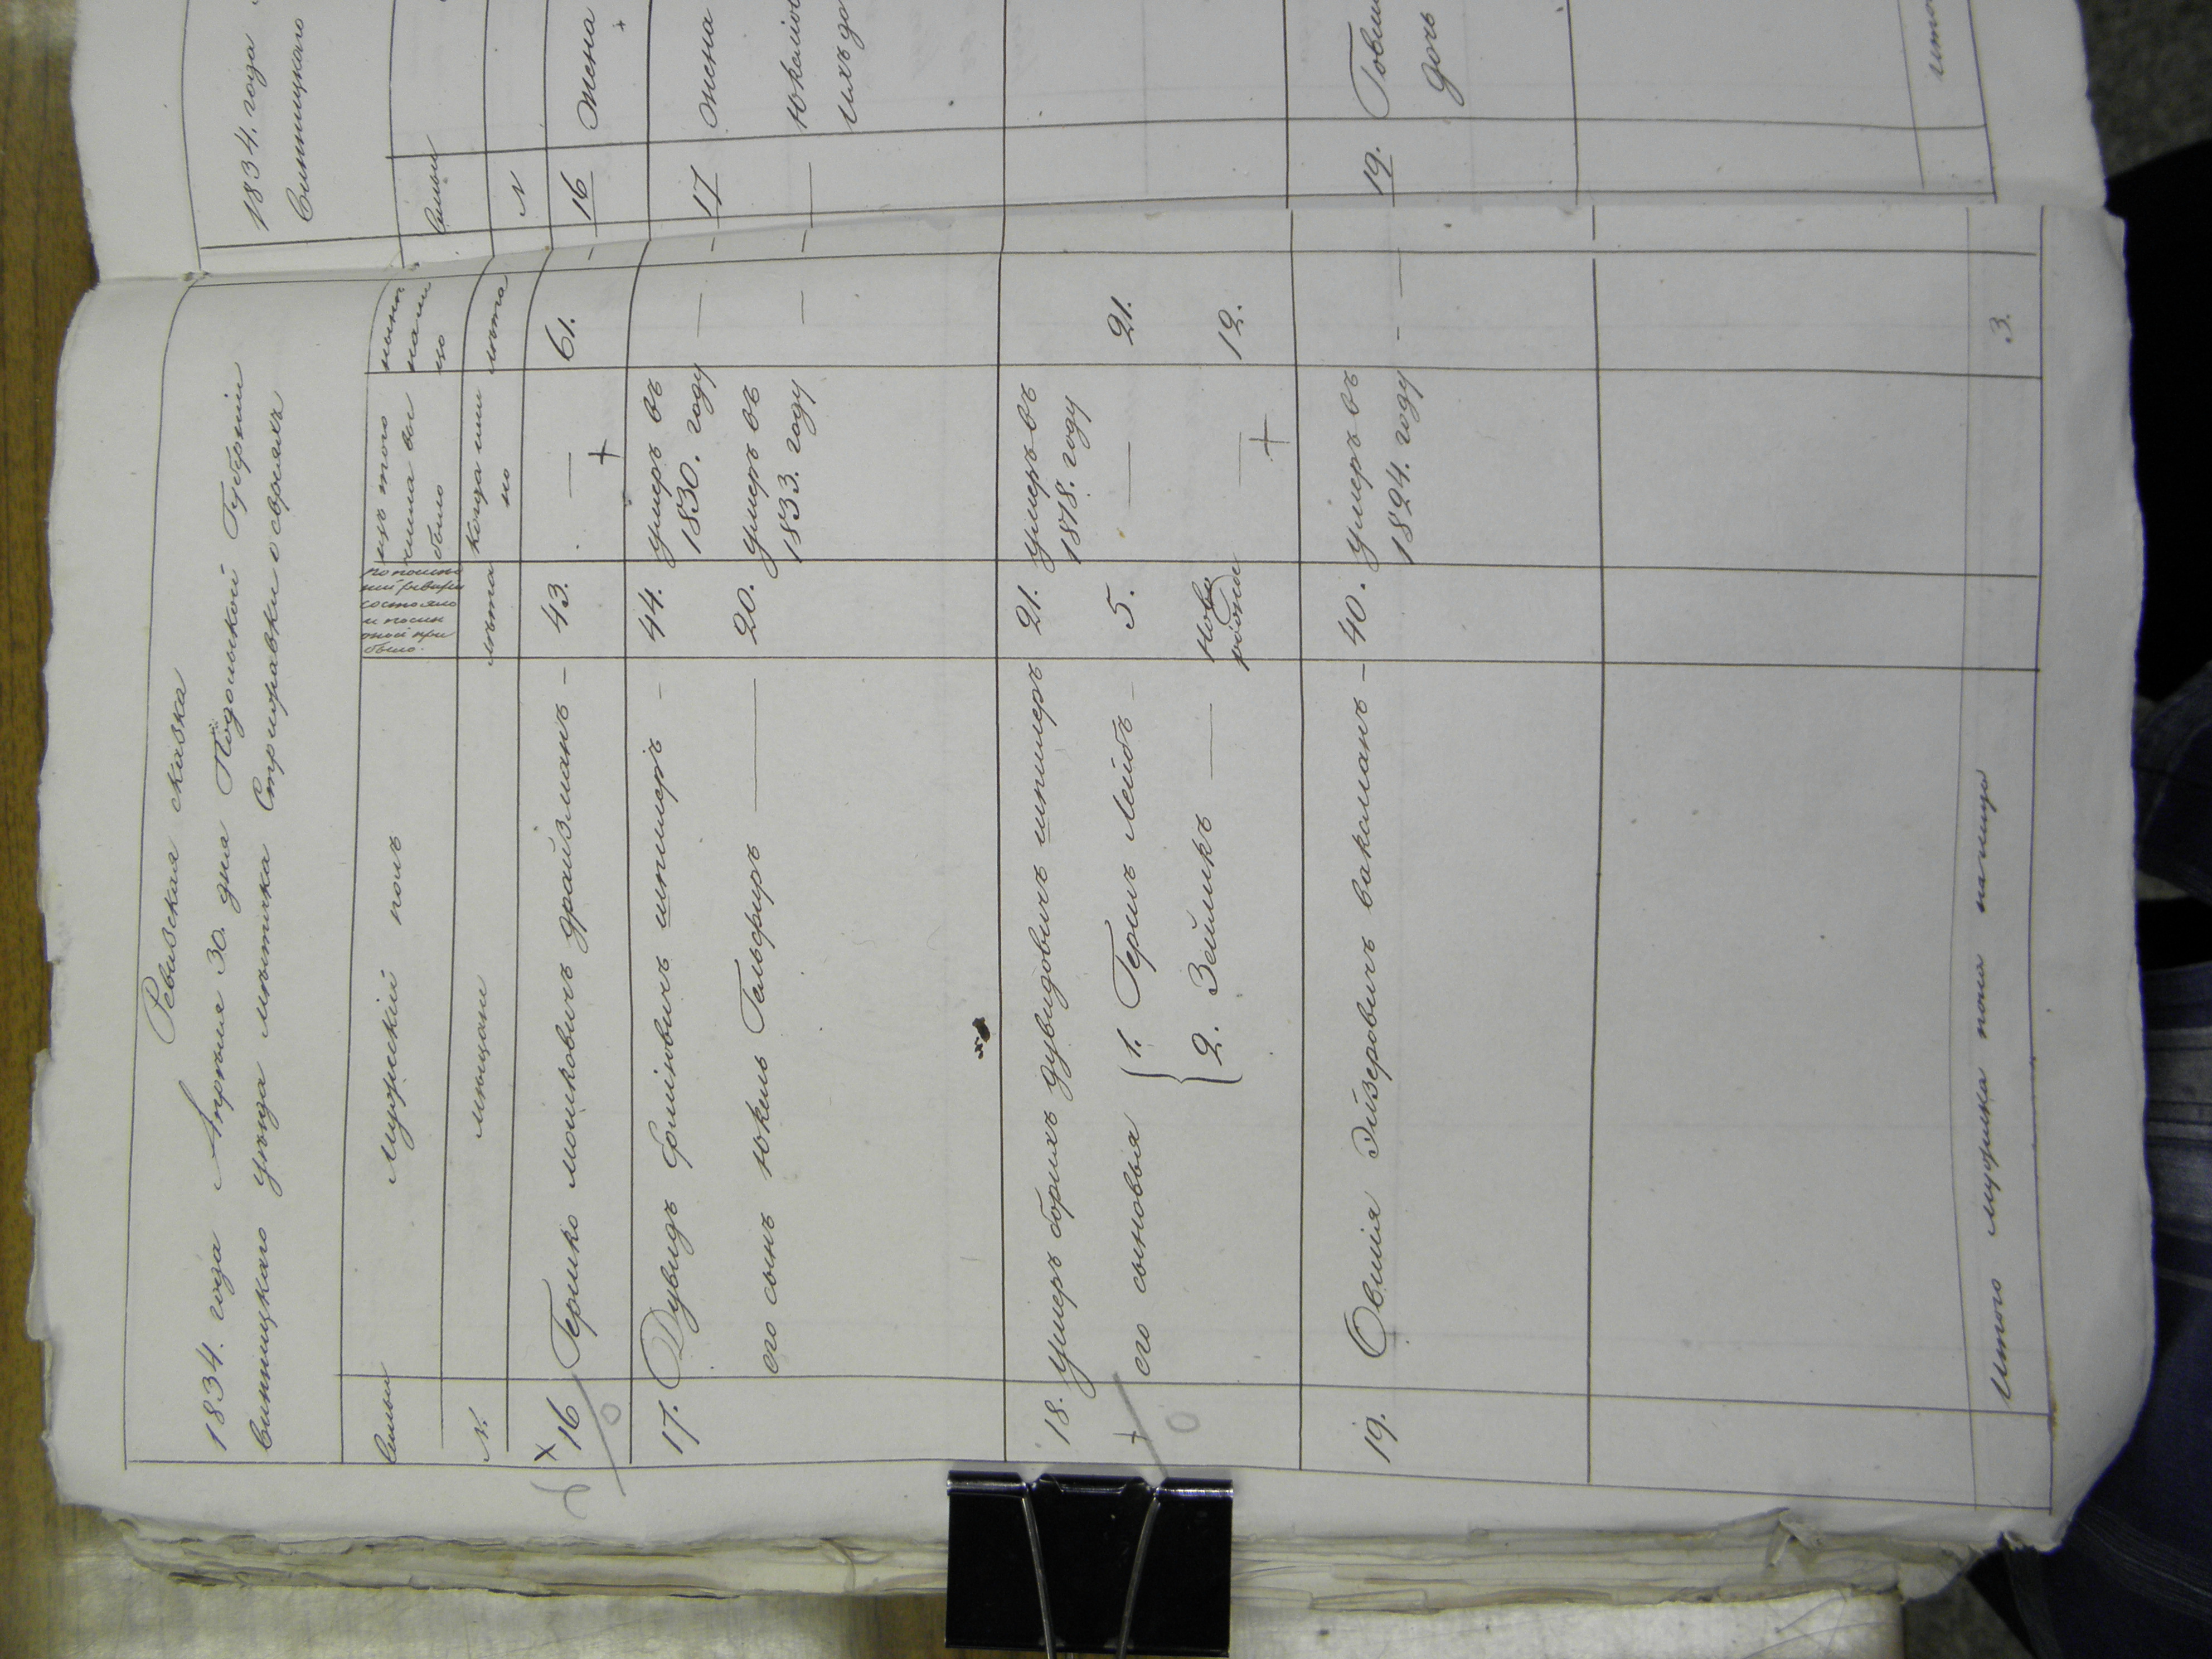 Ревизская сказка
1834. года Апреля 30. дня Подольской Губернии
Винницкаго уезда местечка Стрижавки о евреяхъ
Семьи
Мужескій полъ
по послед
ней ревизіи
состояло
и после
оной при
было.
изъ того
числа вы
было
ныне
на ли
цо
№.
мещане
лета
когда имен
но
лета
16 Гершко мошковичъ драйзманъ — 43. — 61. —
17. Дувидъ Фроимовичъ шпилеръ — 44. умеръ въ
1830. году — —
его сынъ Юкель Гальфиръ — 20. умеръ въ
1833. году — —
18. умеръ борихъ дувидовичъ шпилеръ 21. умеръ въ
1818. году
его сыновья { 1. Гершъ Лейбъ — 5. — 21.
2. Зейликъ — ново
рожден — 12.
19. Овшія Эйзеровичъ ваксманъ — 40. умеръ въ
1824. году — —
Итого мужеска пола на лицо 3.
1834. года
Винницкаго
Семьи
№
16 Жена
17 Жена
— Юкелю
ихъ до
19. Говши
дочь
итого